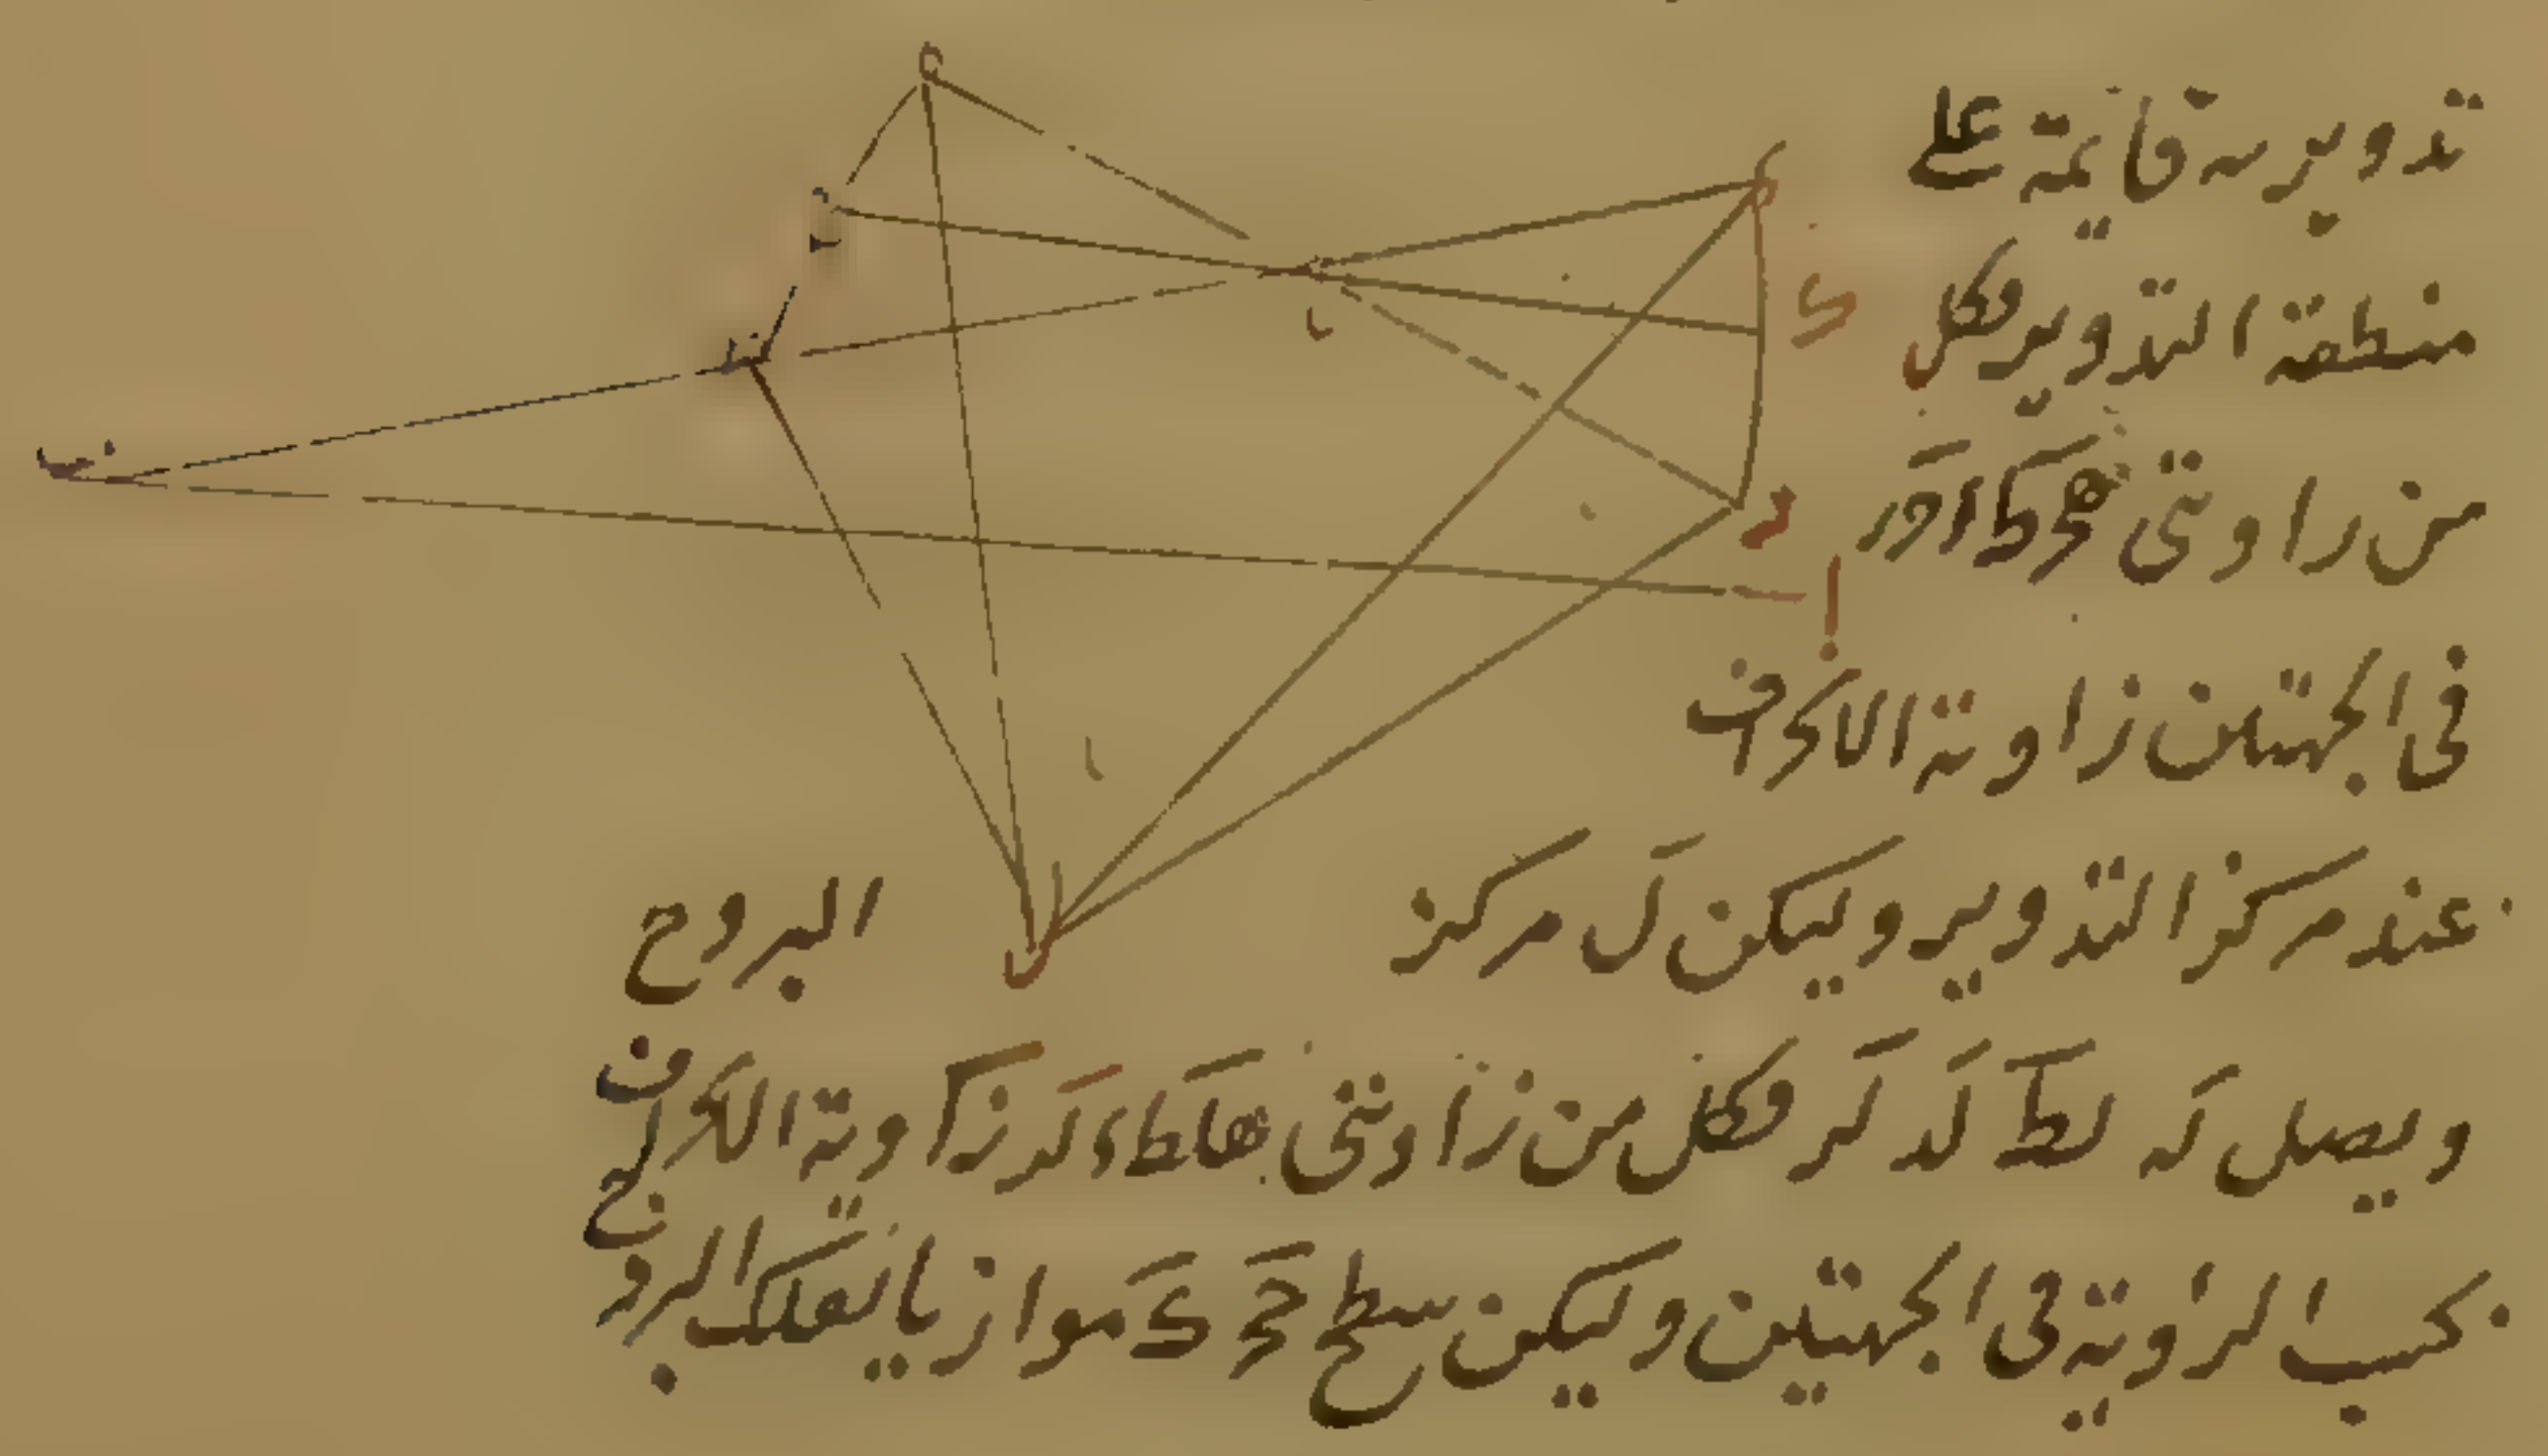 تدويريه قايمة على
منطقة التدوير فكل
من زاويتى هح ط ا
فى الجهتين زاوية الانحراف
عند مركز التدوير وليكن ل مركز البروج
ويصل له لط لد لر فكل من زاويتى زاوية الانحراف
بحسب الرؤية فى الجهتين وليكن سطح ح ى موازيا لفلك البروج